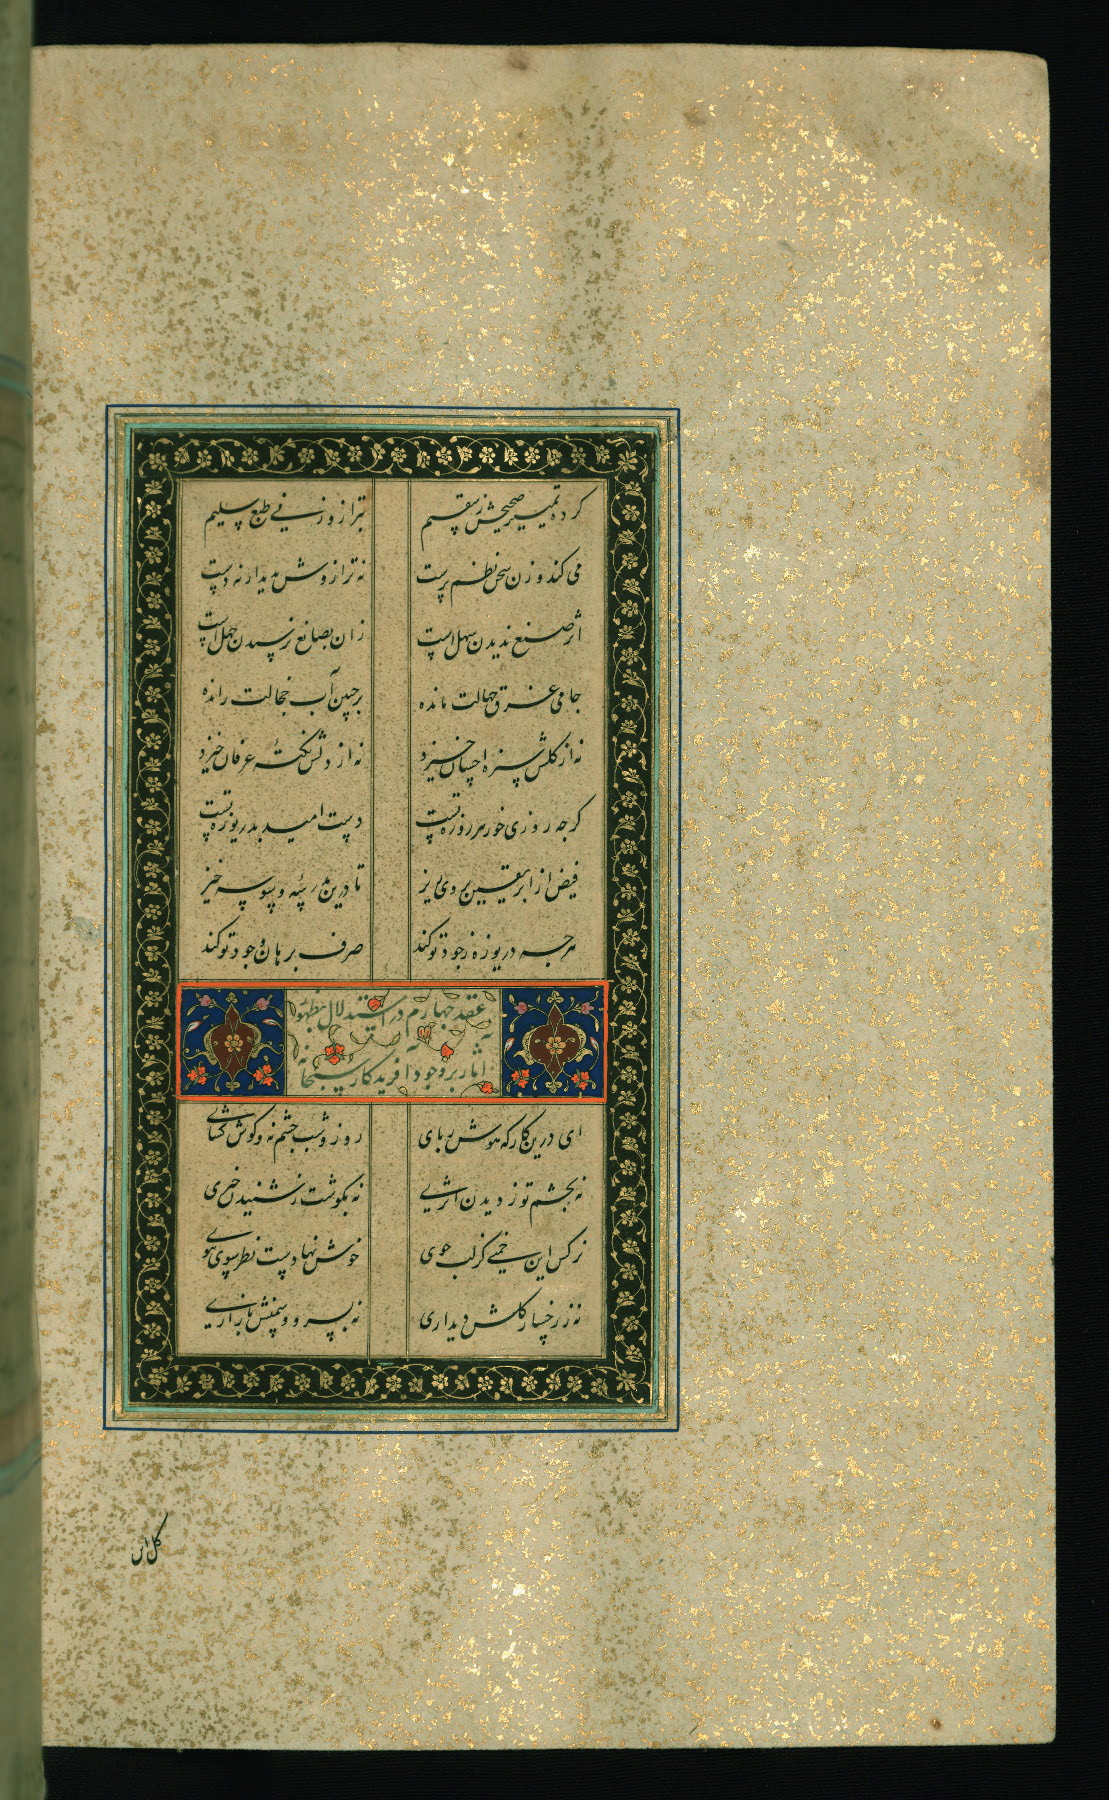 کرده تمییز صحیحش ز سقیم به ترازوزنی طبع سلیم
می کند وزن سخن نظم پرست نه ترازوش پدیدار نه دست
اثر صنع ندیدن سهل است زان بصانع نرسیدن جهل است
جامی غرق جهالت مانده بر جبین آب خجالت رانده
نه از گلش سبزه احسان خیزد نه از دلش نکته عرفان خیزد
کرچه روزی خور هر روزه تست دست امید بدریوزه تست
فیض از ابر یقین بر وی ریز تا درین مدرسه وسوسه خیز
هر چه دریوزه ز جود تو کند صرف برهان وجود تو کند
عقد چهارم در استدلال بظهور
آثار بر وجود آفریدگار سبحانه
ای درین کارگه هوش ربای روز و شب چشم نه و گوش گشای
نه بچشم تو ز دیدن اثری نه بگوشت ز شنیدن خبری
نرگس این خیمه کز لب جوی خوش نهادست نظر سوی بسوی
نه ز رخسار گلش دیداری نه بسرو و سمنش بازاری
گل این